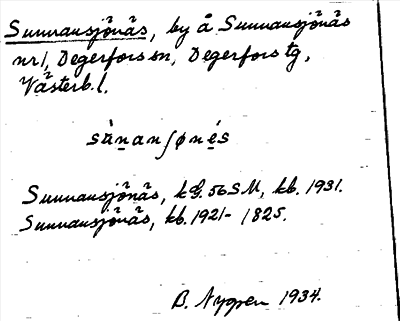 Sunnansjönäs, by å Sunnansjönäs
nr 1, Degerfors sn, Degerfors tg,
Västerb. l.
sùnanʃønés
Sunnansjönäs, kG. 56 SM, kb. 1931.
Sunnansjönäs, kb. 1921- 1825.
B. Nygren 1934.